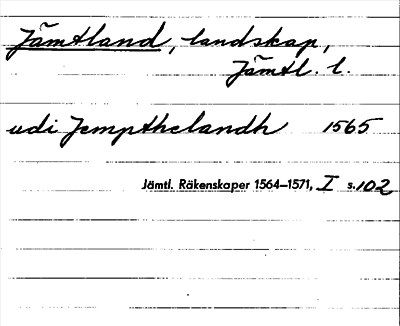 Jämtland, landskap,
Jämtl. l.
udi Jempthelandh 1565
Jämtl. Räkenskaper 1564–1571, I s. 102